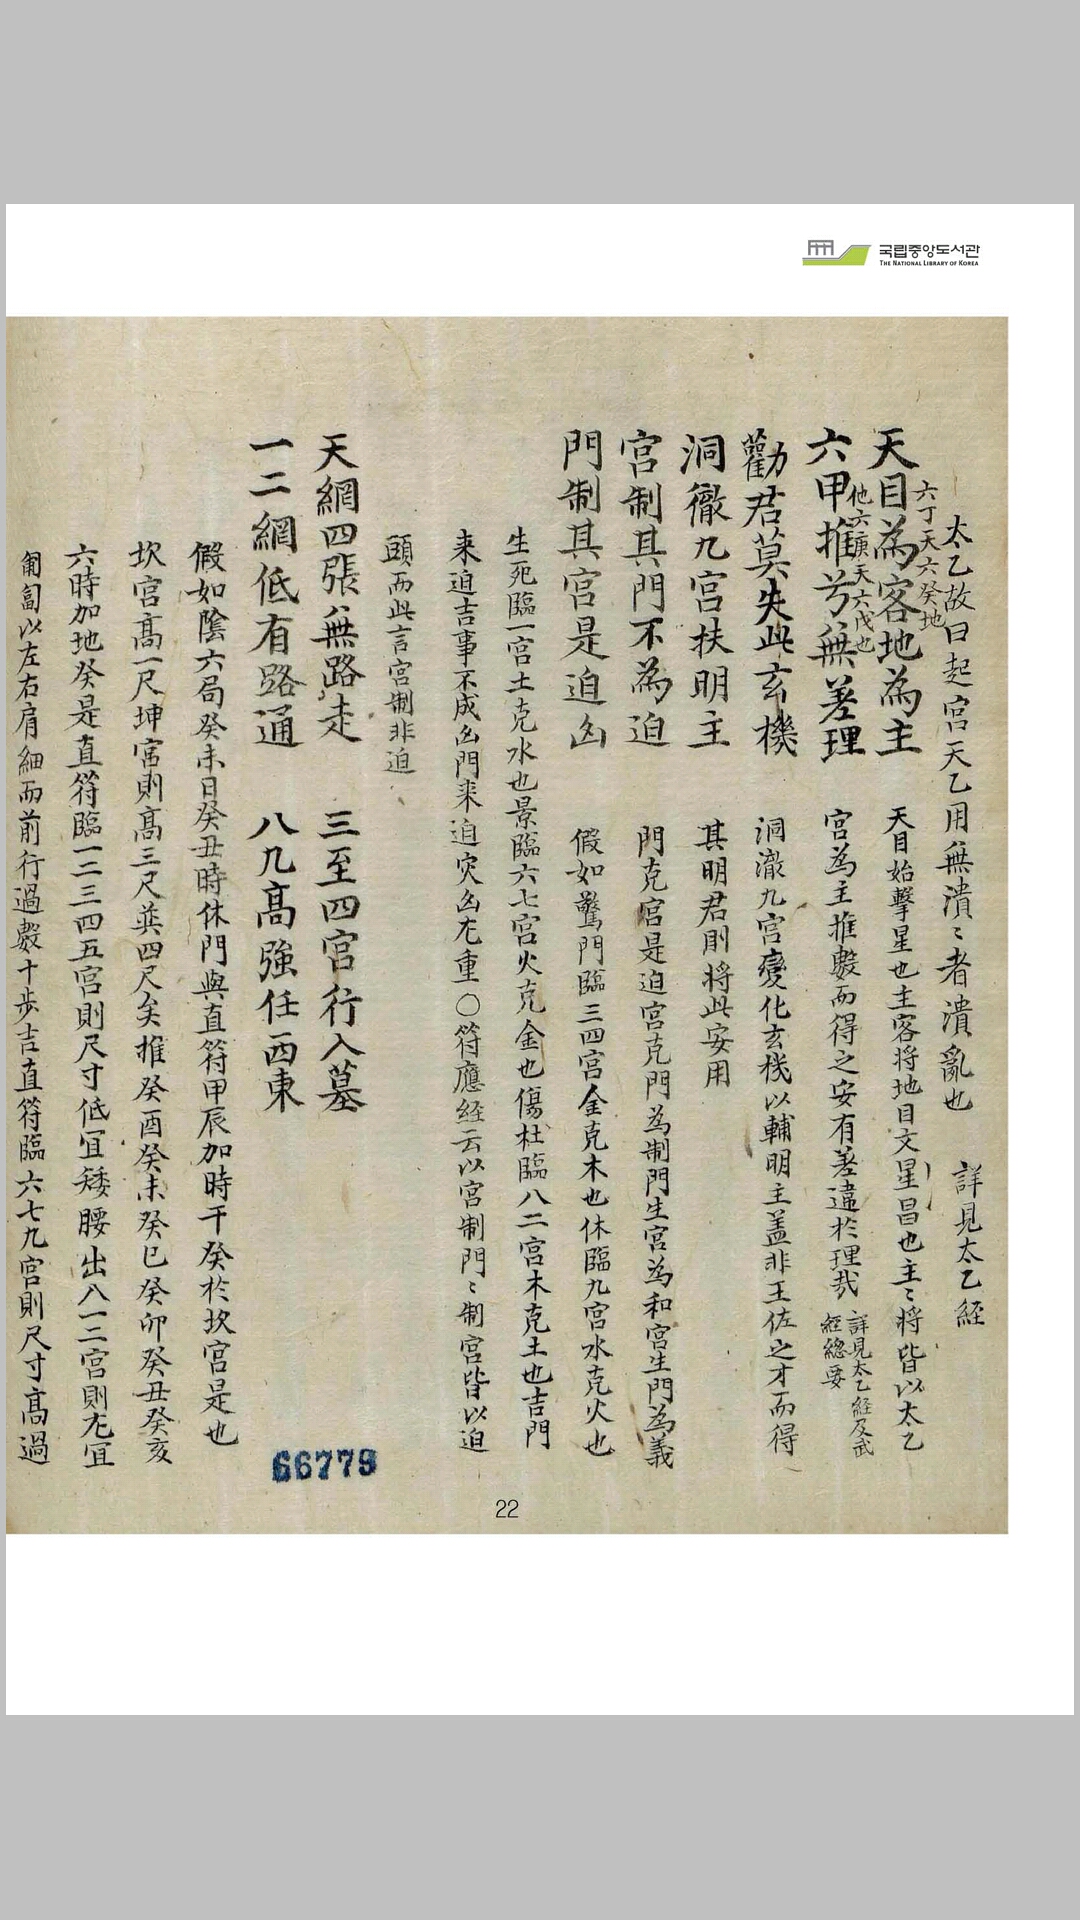 국립중앙도서관
THE NATIONAL LIBRARY OF KOREA
太乙故曰起宮天乙用無潰〻者潰亂也 詳見太乙經
六丁天六癸地
天目為客地為主 天目始擊星也主客將地目文星昌也主〻將皆以太乙
他六庚天六戊也
六甲推兮無差理 宮為主推數而得之安有差違於理哉 詳見太乙經及武經總要
勸君莫失此玄機 洞澈九宮變化玄機以輔明主盖非王佐之才而得
洞徹九宮扶明主 其明君則將此安用
宮制其門不為迫 門克宮是迫宮克門為制門生宮為和宮生門為義
門制其宮是迫凶 假如驚門臨三四宮金克木也休臨九宮水克火也
生死臨一宮土克水也景臨六七宮火克金也傷杜臨八二宮木克土也吉門
来迫吉事不成凶門来迫灾凶尤重〇符應経云以宮制門〻制宮皆以迫
頭而此言宮制非迫
天網四張無路走 三至四宮行入墓
一二網低有路通 八九髙強任西東
假如陰六局癸未日癸丑時休門與直符甲辰加時干癸於坎宮是也
坎宮髙一尺坤宮則髙三尺巽四尺矣推癸酉癸未癸巳癸卯癸丑癸亥
六時加地癸是直符臨一二三四五宮則尺寸低冝矮腰出八一二宮則尤冝
匍匐以左右肩細而前行過數十步吉直符臨六七九宮則尺寸髙過
66779
22